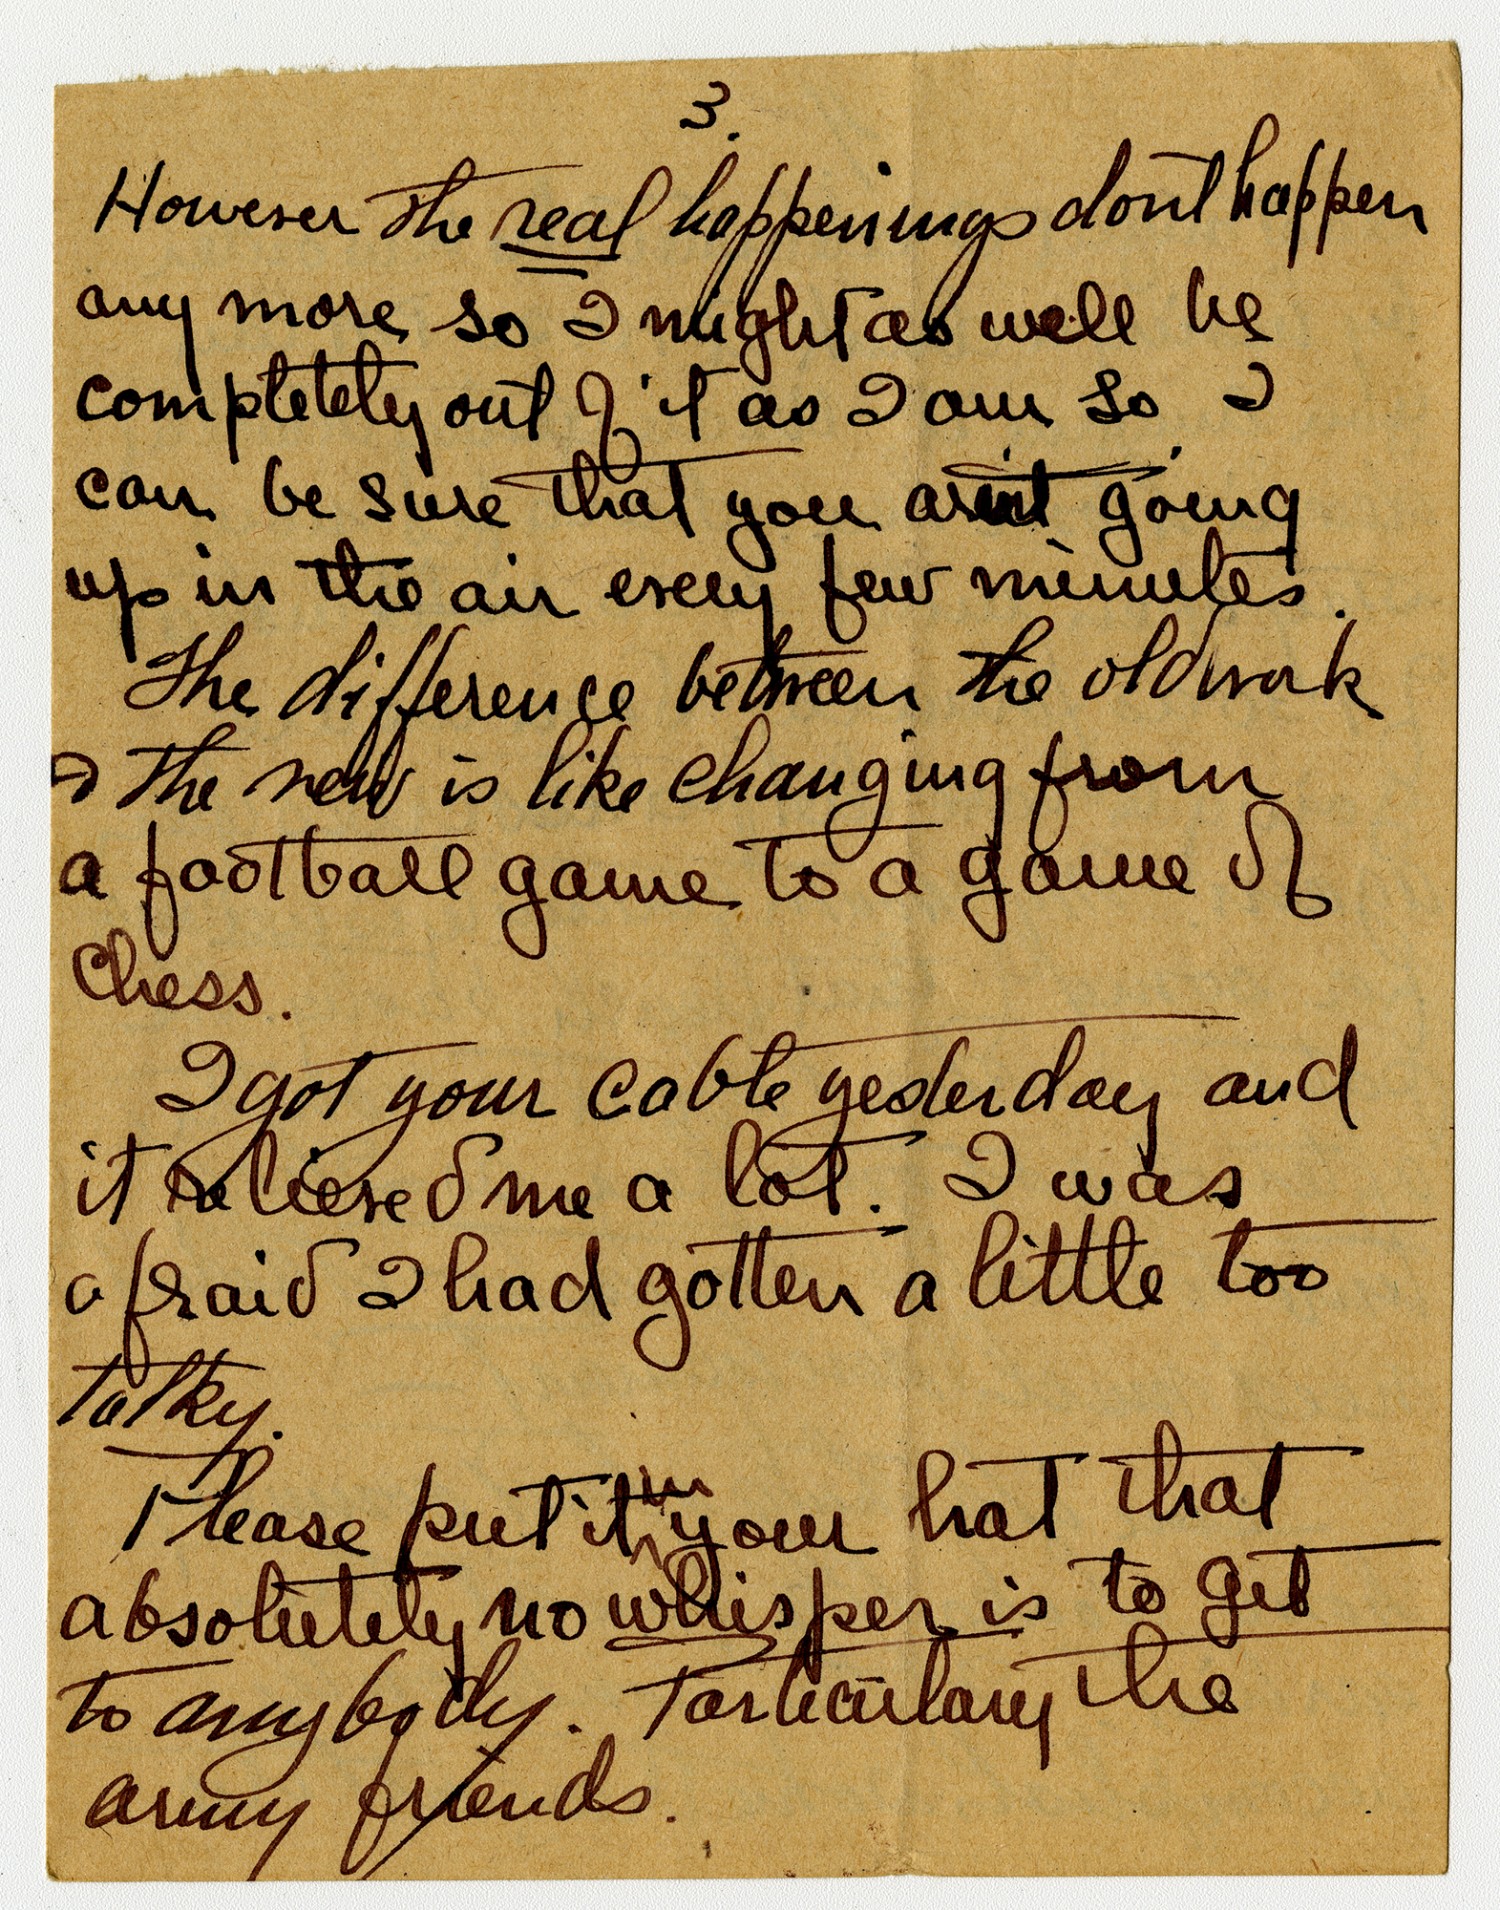 3.
However the real happenings dont happen
any more so I might as well be
completely out of it as I am so I
can be sure that you arent going
up in the air every few minutes.
The difference between the old work
& the new is like changing from
a football game to a game of
Chess.
I got your cable yesterday and
it relieved me a lot. I was
afraid I had gotten a little too
talky.
Please put it in your hat that
absolutely no whisper is to get
to anybody. Particulary the
army friends.